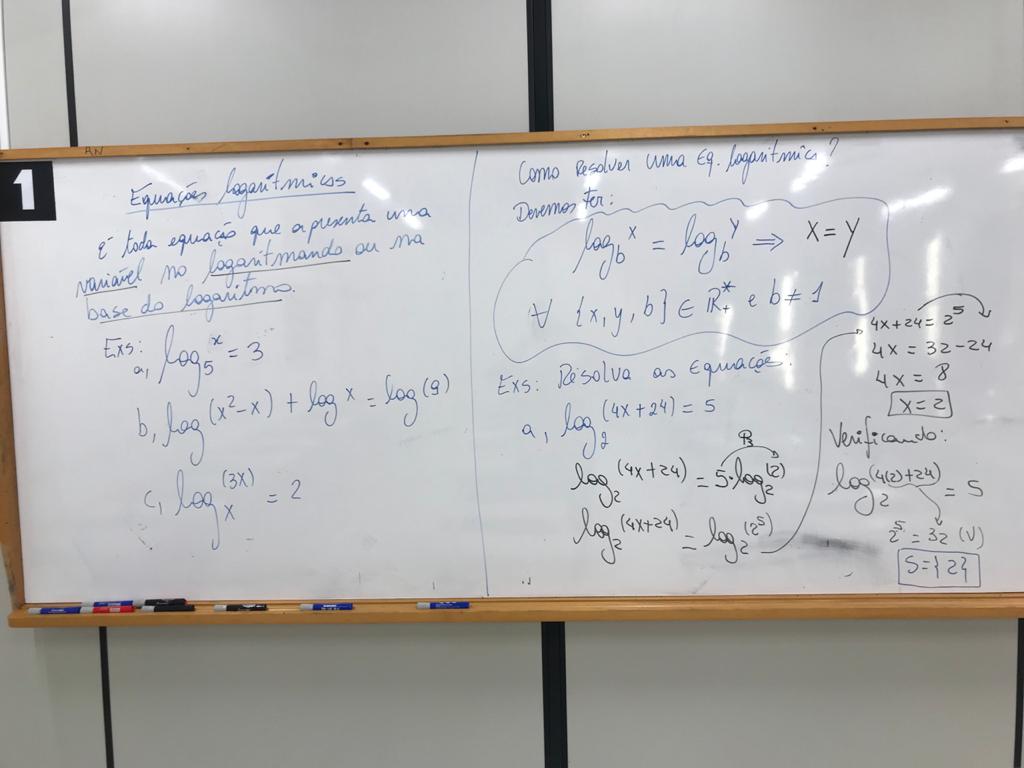 1
Equações logarítmicas
É toda equação que apresenta uma
variável no logaritmando ou na
base do logaritmo.
Exs:
a, log₅ˣ = 3
b, log^(x²-x) + log^x = log^(9)
c, logₓ^(3x) = 2
Como Resolver uma Eq. logarítmica?
Devemos ter:
log_b^x = log_b^y ⇒ x = y
∀ {x, y, b} ∈ ℝ₊* e b ≠ 1
Exs: Resolva as Equações:
a, log₂^(4x+24) = 5
P₃
log₂^(4x+24) = 5·log₂^(2)
log₂^(4x+24) = log₂^(2⁵)
4x+24 = 2⁵
4x = 32-24
4x = 8
x = 2
Verificando:
log₂^(4(2)+24) = 5
2⁵ = 32 (V)
S={2}